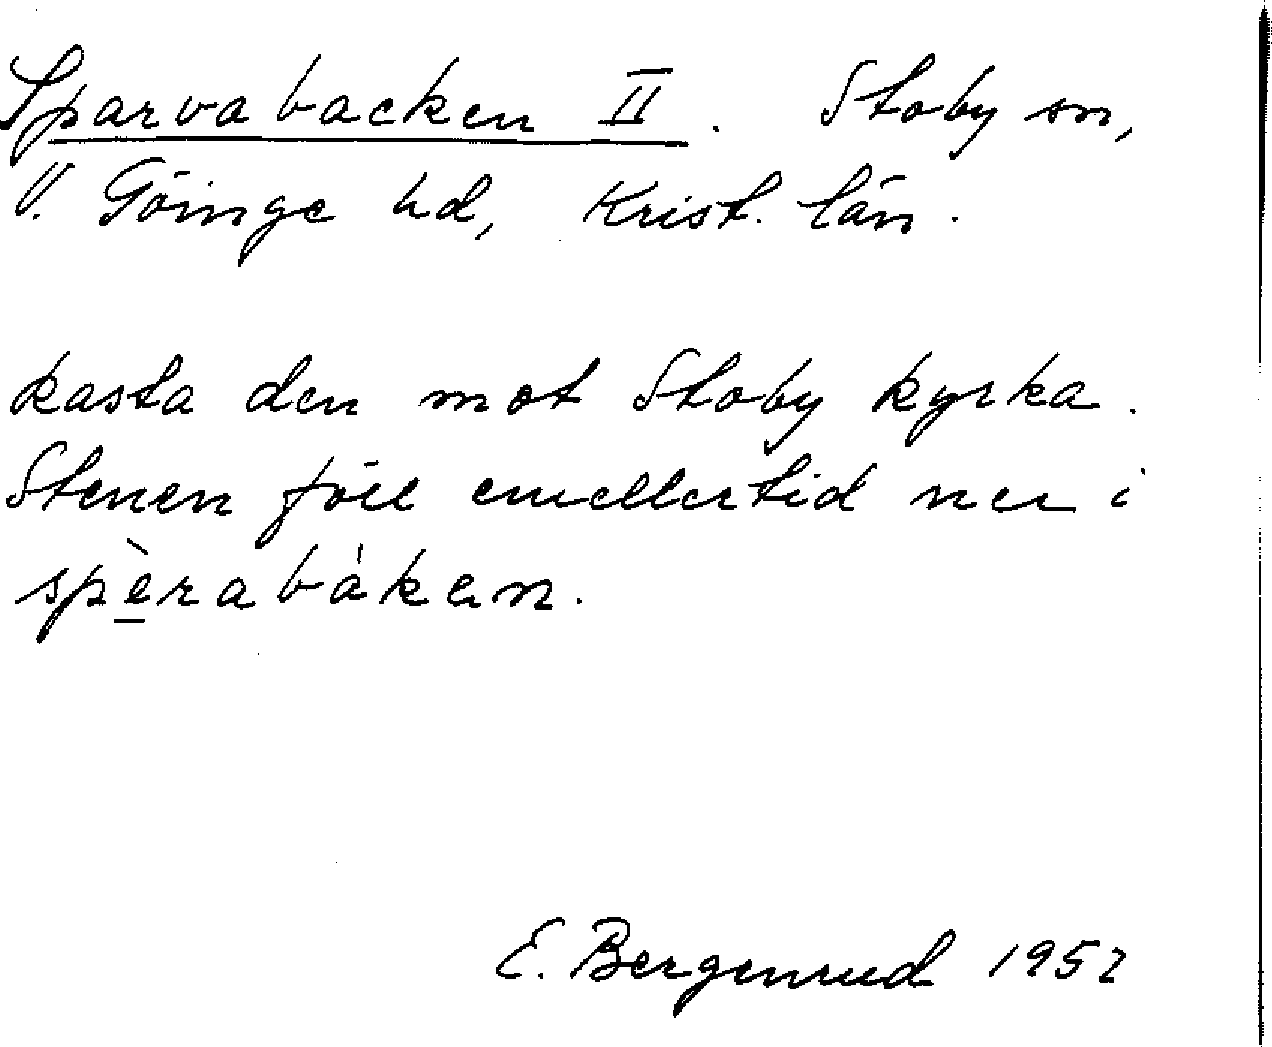 Sparvabacken II. Stoby sn,
V. Göinge hd, Krist. län.
kasta den mot Stoby kyrka.
Stenen föll emellertid ner i
spè̱rabákan.
E. Bergenrud 1952